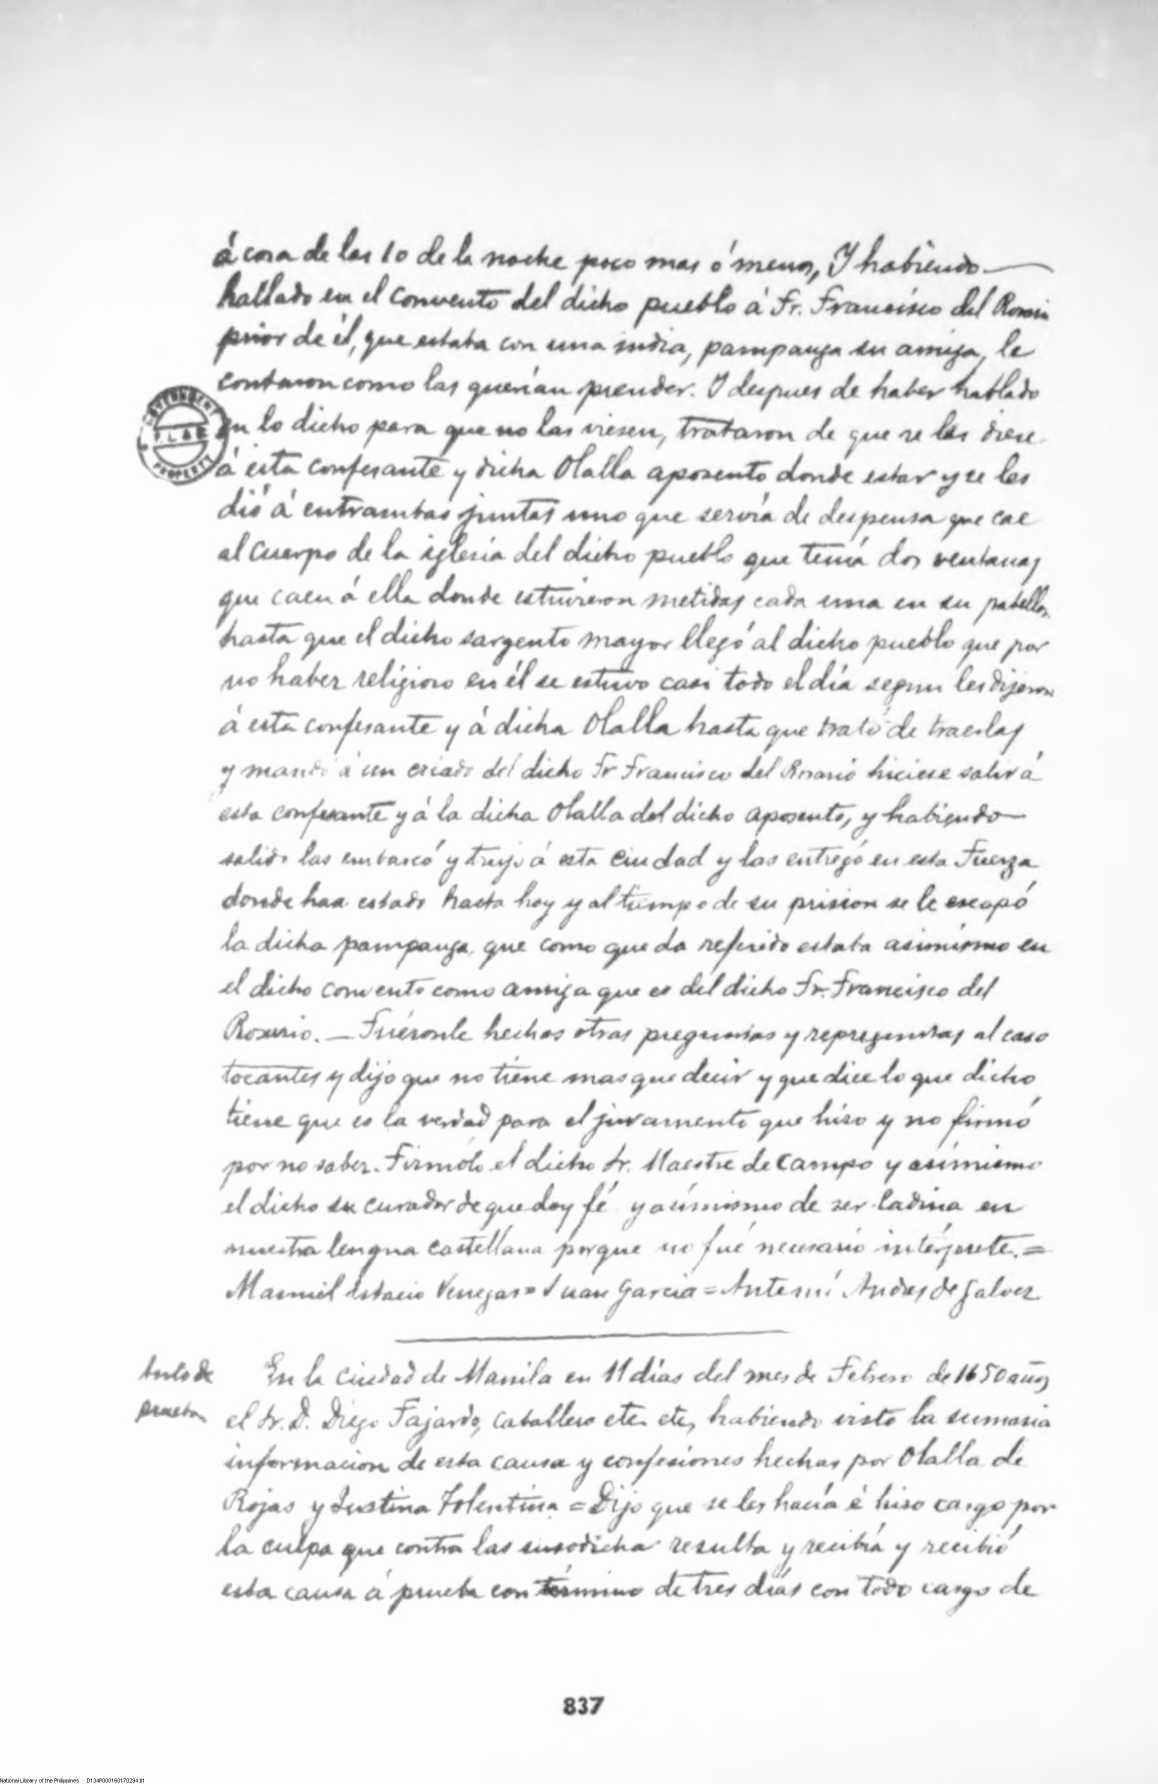 á cosa de las 10 de la noche poco mas ó menos, Y habiendo
hallado en el convento del dicho pueblo á Fr. Francisco del Rosario
prior de él, que estaba con una india, pampanga su amiga, le
contaron como las querían prender. Y despues de haber hablado
en lo dicho para que no las viesen, trataron de que se les diese
á esta confesante y dicha Olalla aposento donde estar y se les
dió á entrambas juntas uno que servía de despensa que cae
al cuerpo de la iglesia del dicho pueblo que tenía dos ventanas
que caen á ella donde estuvieron metidas cada una en su pabellon
hasta que el dicho sargento mayor llegó al dicho pueblo que por
no haber religioso en él se estuvo casi todo el día segun les dijeron
á esta confesante y á dicha Olalla hasta que trató de traerlas
y mandó á un criado del dicho Fr Francisco del Rosario hiciese salir á
esta confesante y á la dicha Olalla del dicho aposento, y habiendo
salido las embarcó y trujo á esta ciudad y las entregó en esta Fuerza
donde han estado hasta hoy y al tiempo de su prision se le escapó
la dicha pampanga, que como queda referido estaba asimismo en
el dicho convento como amiga que es del dicho Fr. Francisco del
Rosario. — Fuéronle hechas otras preguntas y repreguntas al caso
tocantes y dijo que no tiene mas que decir y que dice lo que dicho
tiene que es la verdad para el juramento que hizo y no firmó
por no saber. Firmólo el dicho Sr. Maestre de Campo y asimismo
el dicho su curador de que doy fé y asimismo de ser ladina en
nuestra lengua castellana porque no fué necesario intérprete. =
Manuel Estacio Venegas = Juan Garcia = Antemí Andres de Galvez
Auto de prueba
En la ciudad de Manila en 11 días del mes de Febrero de 1650 años
el Sr. D. Diego Fajardo, caballero etc. etc, habiendo visto la sumaria
informacion de esta causa y confesiones hechas por Olalla de
Rojas y Justina Tolentina = Dijo que se les hacía é hizo cargo por
la culpa que contra las susodichas resulta y recibía y recibió
esta causa á prueba con término de tres días con todo cargo de
GOVERNMENT
PROPERTY
837
National Library of the Philippines